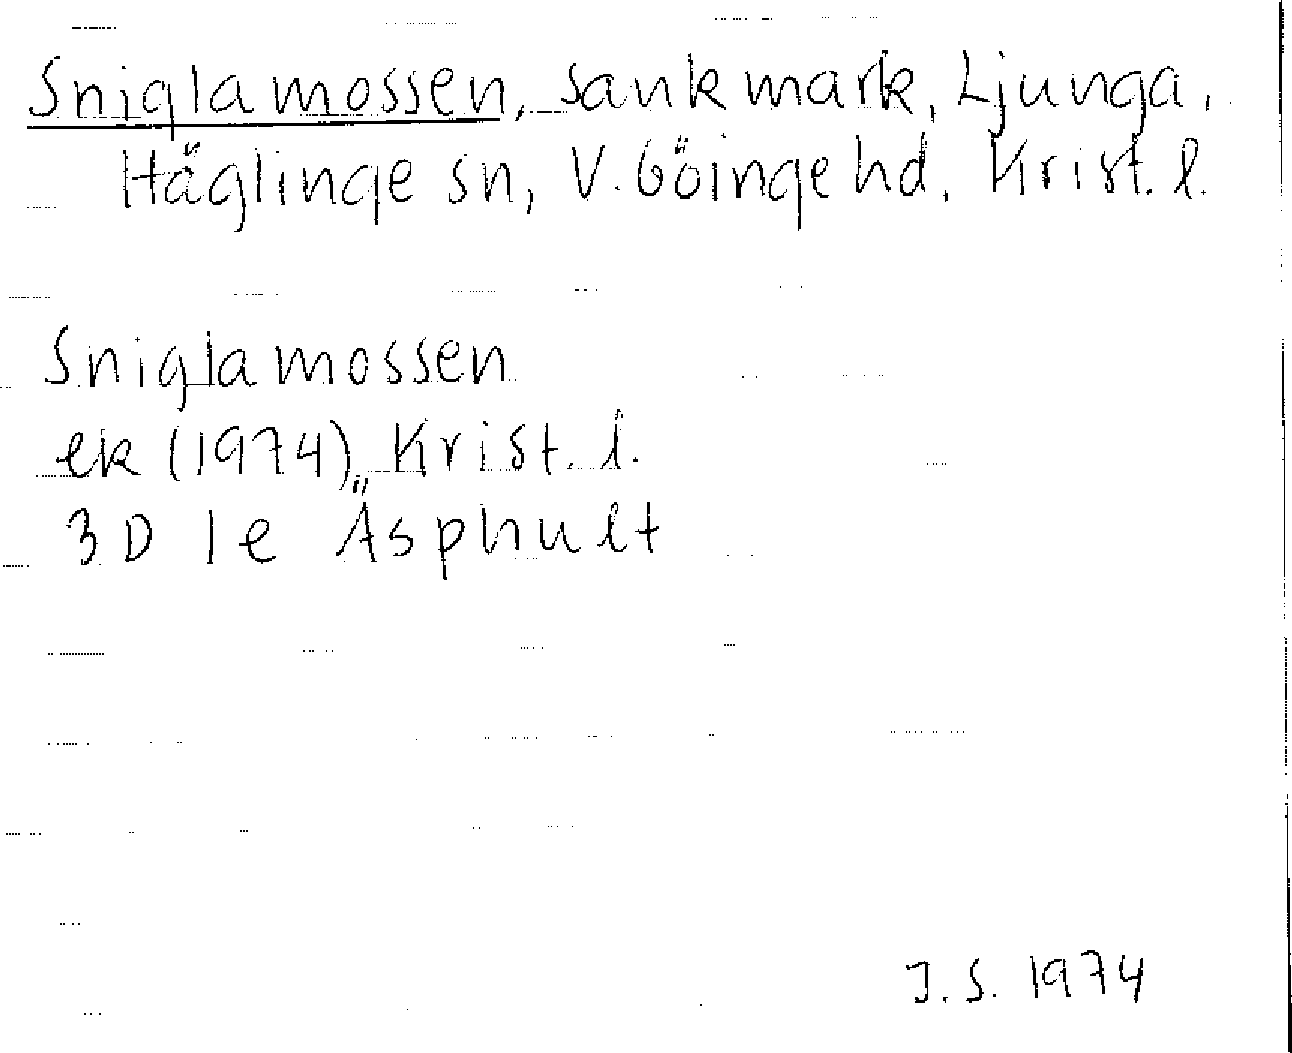 Sniglamossen, sankmark, Ljunga,
Häglinge sn, V. Göinge hd, Krist. l.
Sniglamossen
ek (1974), Krist. l.
3D 1e Äsphult
J.S. 1974